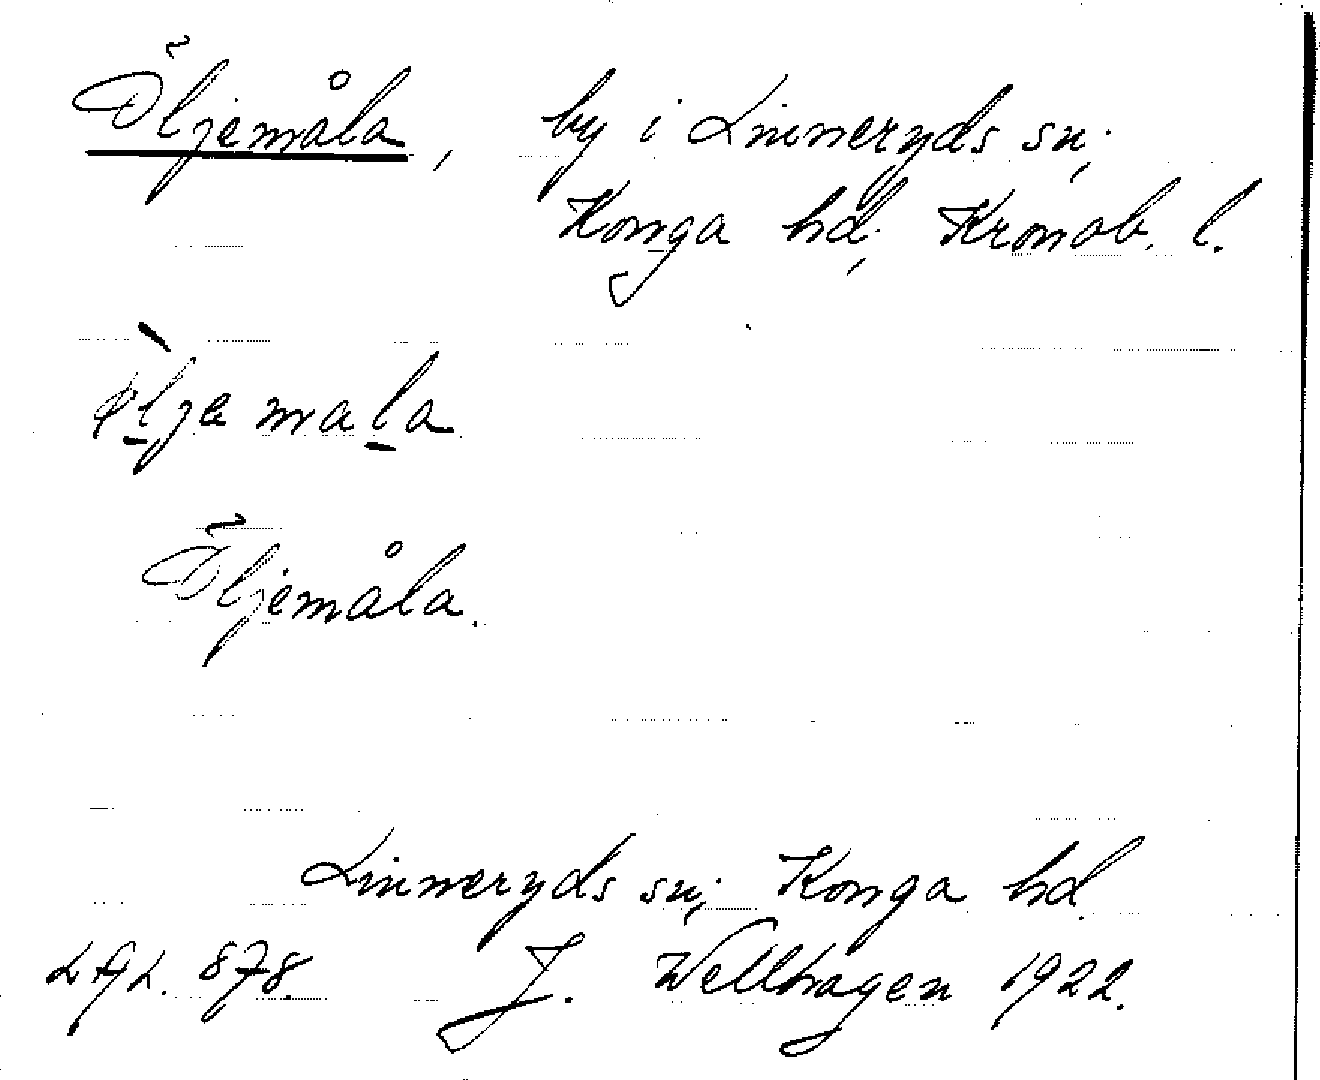 Öljemåla, by i Linneryds sn,
Konga hd, Kronob. l.
øljemala
Öljemåla.
Linneryds sn, Konga hd.
LAL. 878. J. Wellhagen 1922.